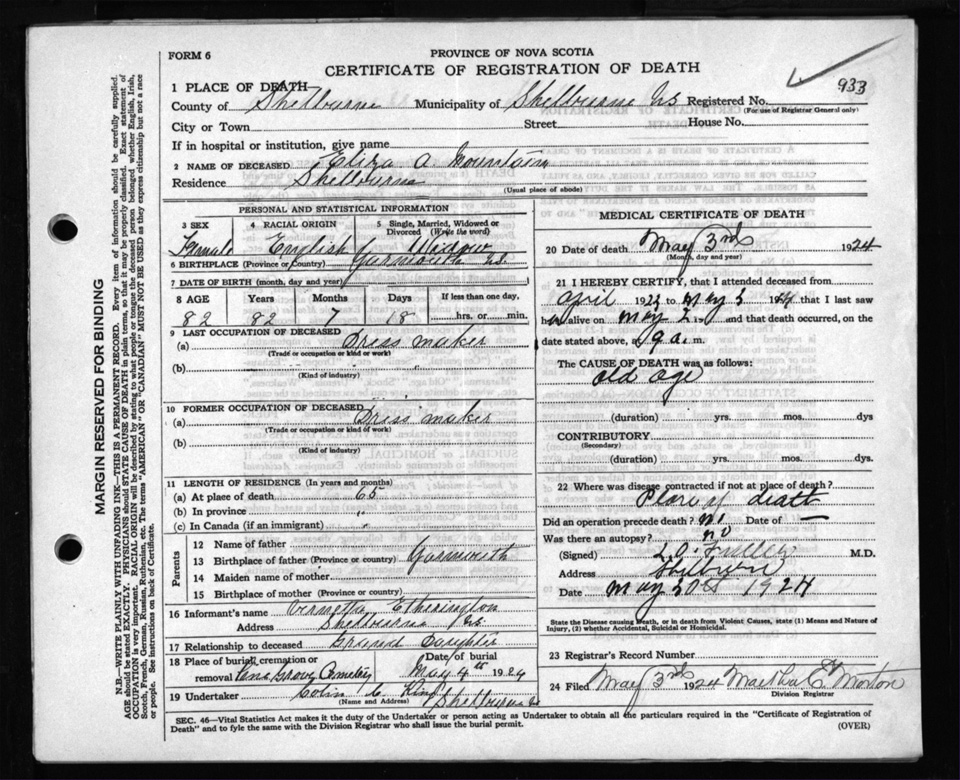 FORM 6
PROVINCE OF NOVA SCOTIA
CERTIFICATE OF REGISTRATION OF DEATH
933
1 PLACE OF DEATH
County of Shelburne Municipality of Shelburne NS Registered No.
(For use of Registrar General only)
City or Town Street House No.
If in hospital or institution, give name
2 NAME OF DECEASED Eliza A Mountain
Residence Shelburne
(Usual place of abode)
PERSONAL AND STATISTICAL INFORMATION
3 SEX 4 RACIAL ORIGIN 5 Single, Married, Widowed or Divorced (Write the word)
Female English Widow
6 BIRTHPLACE (Province or Country) Yarmouth NS
7 DATE OF BIRTH (month, day and year)
8 AGE Years Months Days If less than one day,
82 82 7 18 hrs. or min.
9 LAST OCCUPATION OF DECEASED
(a) Dress maker
(Trade or occupation or kind of work)
(b)
(Kind of industry)
10 FORMER OCCUPATION OF DECEASED
(a) Dress maker
(Trade or occupation or kind of work)
(b)
(Kind of industry)
11 LENGTH OF RESIDENCE (In years and months)
(a) At place of death 65
(b) In province "
(c) In Canada (if an immigrant) "
Parents
12 Name of father
13 Birthplace of father (Province or country) Yarmouth
14 Maiden name of mother
15 Birthplace of mother (Province or country)
16 Informant's name Etherington
Address Shelburne NS
17 Relationship to deceased Grand Daughter
18 Place of burial, cremation or removal Pine Grove Cemetery Date of burial May 4th 1924
19 Undertaker Colin C King Shelburne NS
(Name and Address)
MEDICAL CERTIFICATE OF DEATH
20 Date of death May 3rd 1924
(Month, day and year)
21 I HEREBY CERTIFY, that I attended deceased from
April 192 to May 3 1924 that I last saw
h alive on May 2 and that death occurred, on
date stated above, at 9 a. m.
The CAUSE OF DEATH was as follows:
old age
(duration) yrs. mos. dys
CONTRIBUTORY
(Secondary)
(duration) yrs. mos. dys
22 Where was disease contracted if not at place of death?
Place of death
Did an operation precede death? no Date of —
Was there an autopsy? no
(Signed) L.O. Fuller M.D.
Address Shelburne
Date May 1924
State the Disease causing Death, or in death from Violent Causes, state (1) Means and Nature of Injury, (2) whether Accidental, Suicidal or Homicidal.
23 Registrar's Record Number
24 Filed May 3rd 1924 Martha C Morton
Division Registrar
SEC. 46—Vital Statistics Act makes it the duty of the Undertaker or person acting as Undertaker to obtain all the particulars required in the "Certificate of Registration of
Death" and to fyle the same with the Division Registrar who shall issue the burial permit.
(OVER)
MARGIN RESERVED FOR BINDING
N.B.—WRITE PLAINLY WITH UNFADING INK—THIS IS A PERMANENT RECORD. Every item of information should be carefully supplied.
AGE should be stated EXACTLY. PHYSICIANS should STATE CAUSE OF DEATH in plain terms, so that it may be properly classified. Exact statement of
OCCUPATION is very important. RACIAL ORIGIN will be described by stating to what people or tongue the deceased person belonged whether English, Irish,
Scotch, French, German, Russian, Ruthenian, etc. The terms "AMERICAN" OR "CANADIAN" MUST NOT BE USED as they express citizenship but not a race
or people. See instructions on back of Certificate.